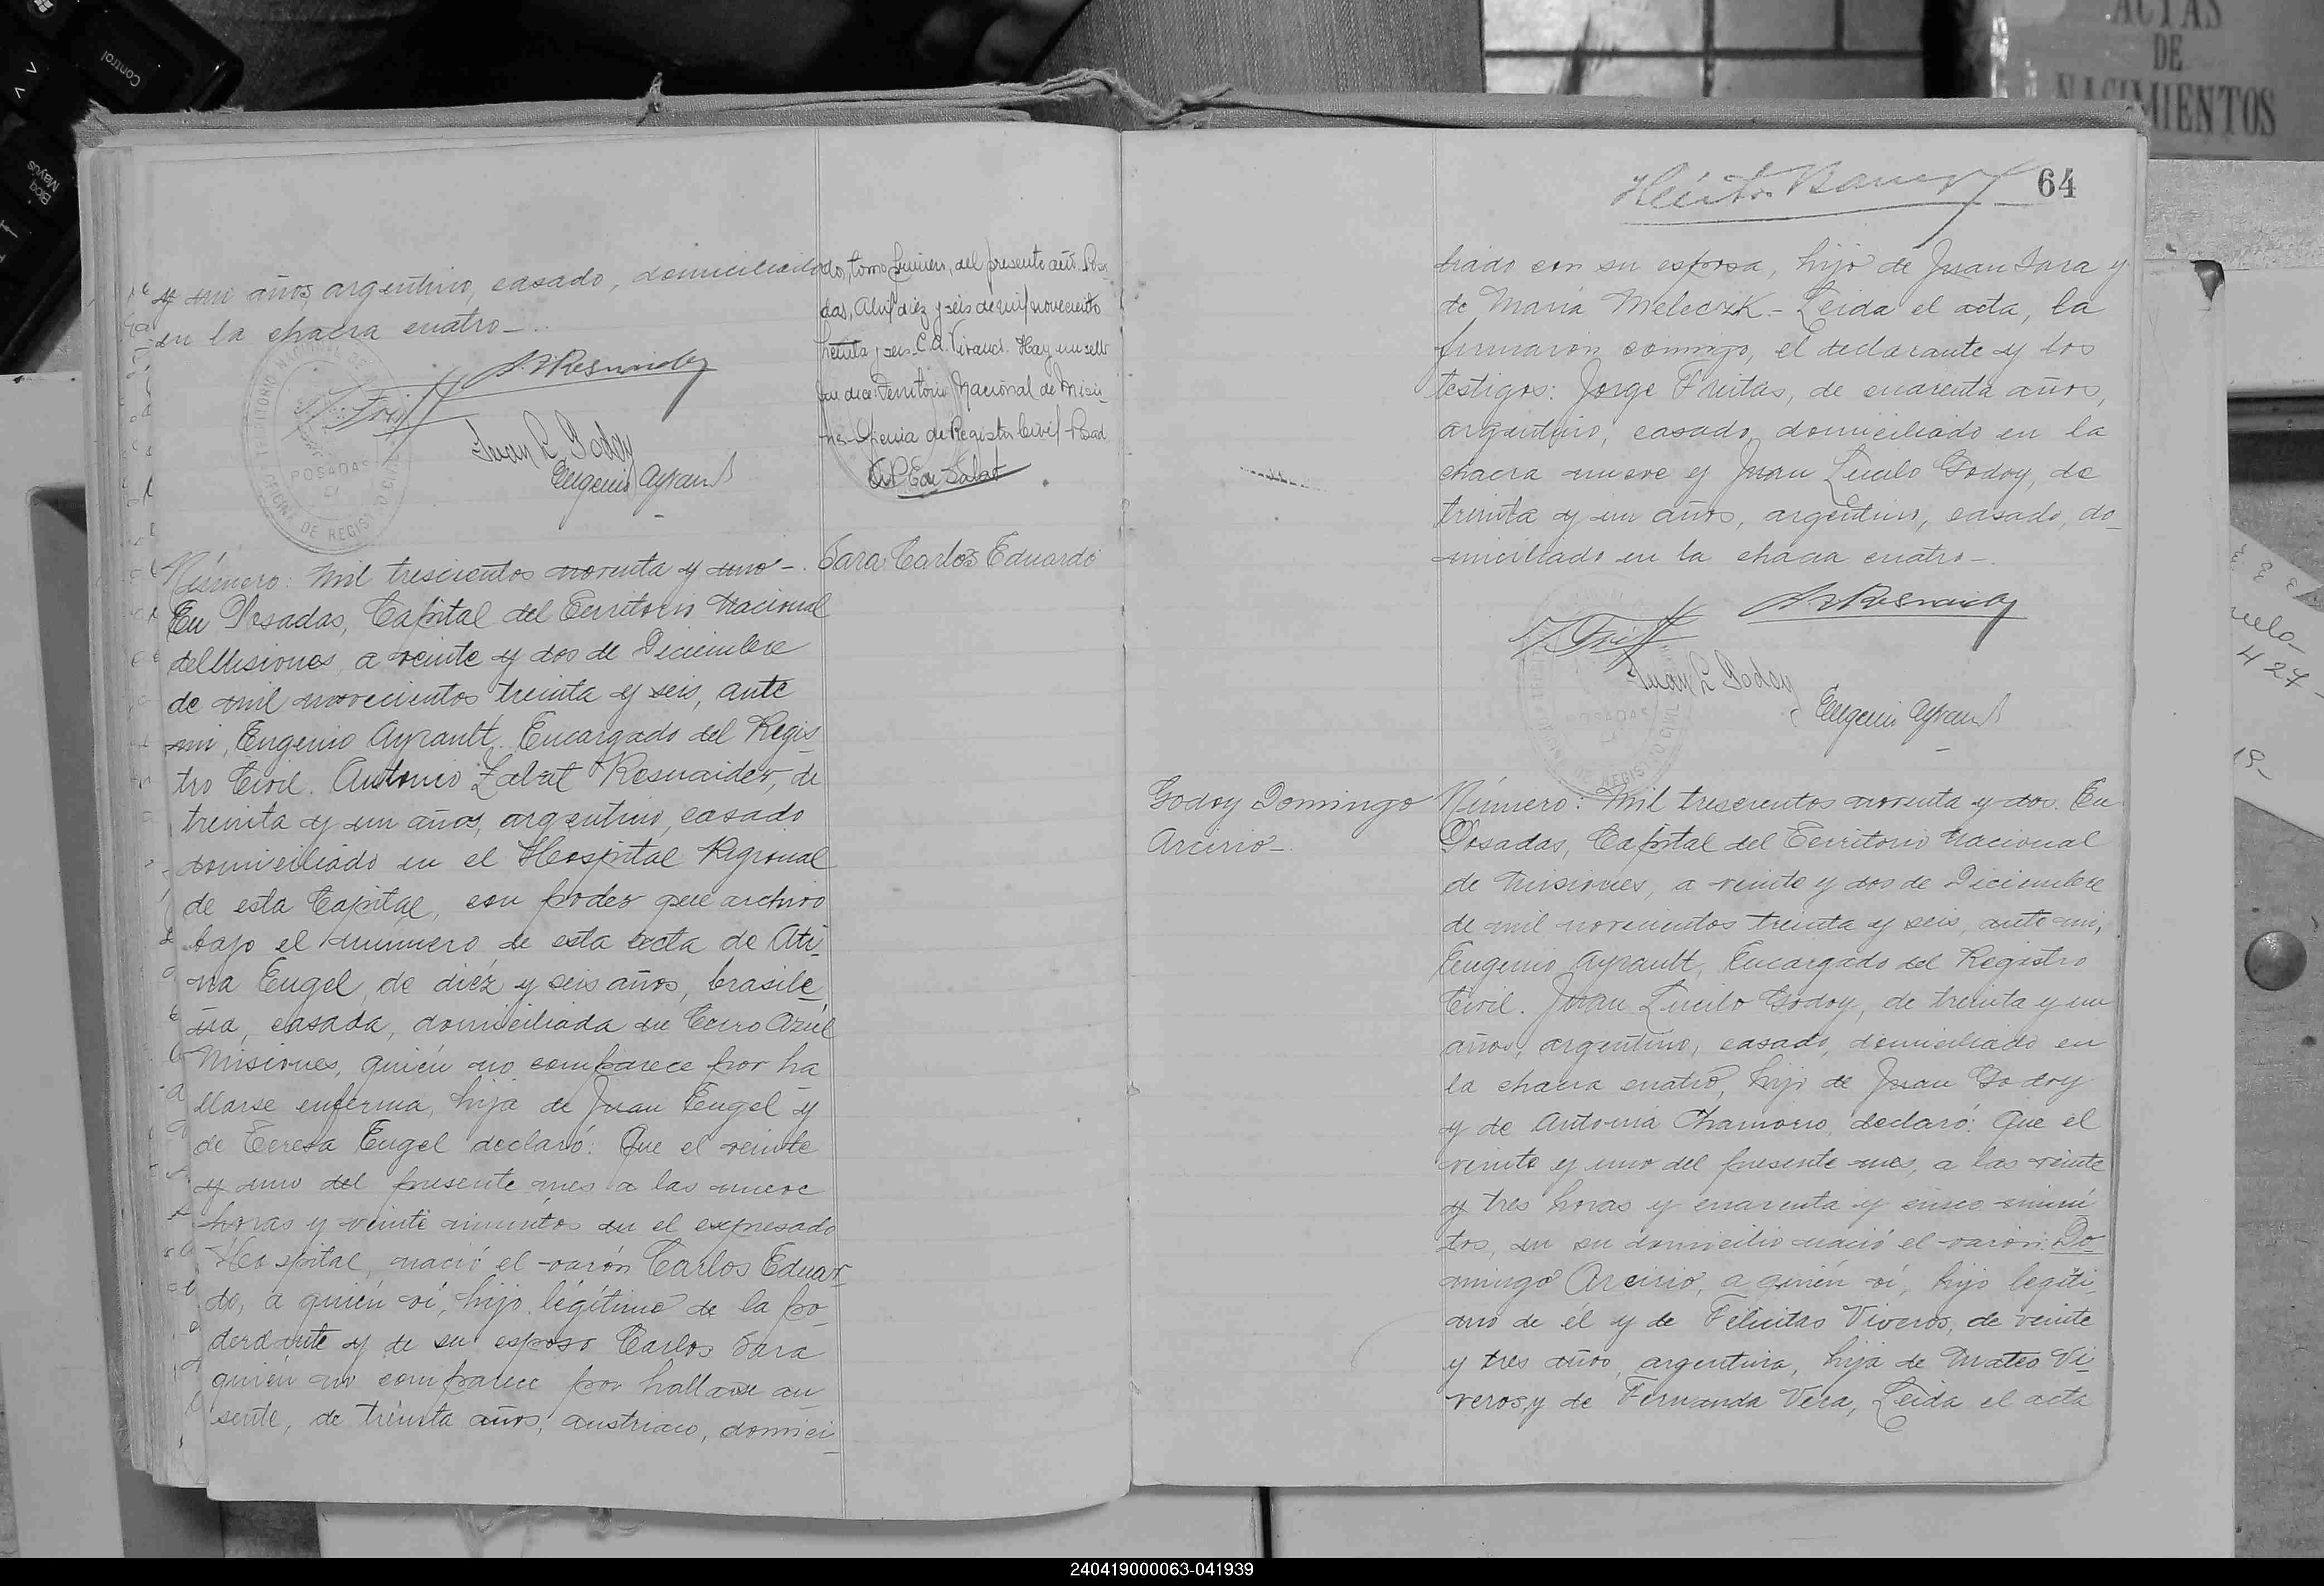 y un años, argentino, casado, domiciliado
en la chacra cuatro_.
Juan L Godoy
Eugenio Ayrault
POSADAS
do, tomo primero, del presente año. Posa_
das, Abril diez y seis de mil novecientos
treinta y seis. C.A. Hay un sello
que dice: Territorio Nacional de Misio_
nes - Oficina de Registro Civil - Posad
Número: mil trescientos noventa y uno_.
Sara Carlos Eduardo
En Posadas, Capital del Territorio Nacional
de Misiones, a veinte y dos de Diciembre
de mil novecientos treinta y seis, ante
mi, Eugenio Ayrault. Encargado del Regis_
tro Civil. Antonio Zabat Resnaider, de
treinta y un años, argentino, casado
domiciliado en el Hospital Regional
de esta Capital, con poder que archivo
bajo el número de esta acta de Ati_
na Engel, de diéz y seis años, brasile_
ña, casada, domiciliada en Cerro Azúl
Misiones, quién no comparece por ha_
llarse enferma, hija de Juan Engel y
de Teresa Engel declaró: Que el veinte
y uno del presente mes a las nueve
horas y veinte minutos en el expresado
Hospital, nació el varón Carlos Eduar_
do, a quién ví, hijo legítimo de la po_
derdante y de su esposo Carlos Sara
quién no comparece por hallarse au_
sente, de treinta años, austriaco, domici_
64
liado con su esposa, hijo de Juan Sara y
de María Meleczk.- Leida el acta, la
firmaron conmigo, el declarante y los
testigos: Jorge Freitas, de cuarenta años,
argentino, casado, domiciliado en la
chacra nueve y Juan Lucilo Godoy, de
treinta y un años, argentino, casado, do_
miciliado en la chacra cuatro_.
Juan L Godoy
Eugenio Ayrault
Godoy Domingo
Arcirio_.
Número: mil trescientos noventa y dos. En
Posadas, Capital del Territorio Nacional
de Misiones, a veinte y dos de Diciembre
de mil novecientos treinta y seis, ante mi,
Eugenio Ayrault, Encargado del Registro
Civil. Juan Lucilo Godoy, de treinta y un
años, argentino, casado, domiciliado en
la chacra cuatro, hijo de Juan Godoy
y de Antonia Chamorro, declaró: Que el
veinte y uno del presente mes, a las veinte
y tres horas y cuarenta y cinco minu_
tos, en su domicilio nació el varón: Do_
mingo Arcirio, a quién ví, hijo legíti_
mo de él y de Felicitas Viveros, de veinte
y tres años, argentina, hija de Mateo Vi_
veros, y de Fernanda Vera, Leida el acta
ACTAS
DE
NACIMIENTOS
Control
Bloq
Mayús
240419000063-041939